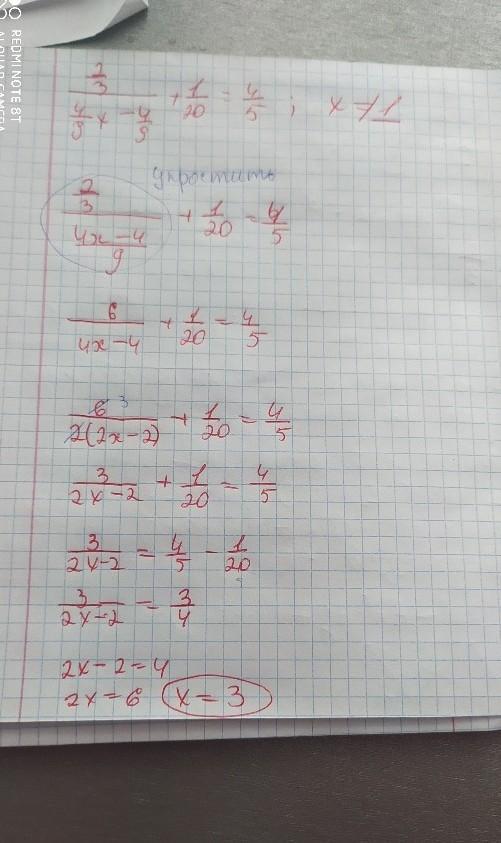 REDMI NOTE 8T
AI QUAD CAMERA
2/3 / (4/9 x - 4/9) + 1/20 = 4/5 ; x ≠ 1
упростить
2/3 / ((4x-4)/9) + 1/20 = 4/5
6/(4x-4) + 1/20 = 4/5
6 3/(2(2x-2)) + 1/20 = 4/5
3/(2x-2) + 1/20 = 4/5
3/(2x-2) = 4/5 - 1/20
3/(2x-2) = 3/4
2x-2=4
2x=6 x=3